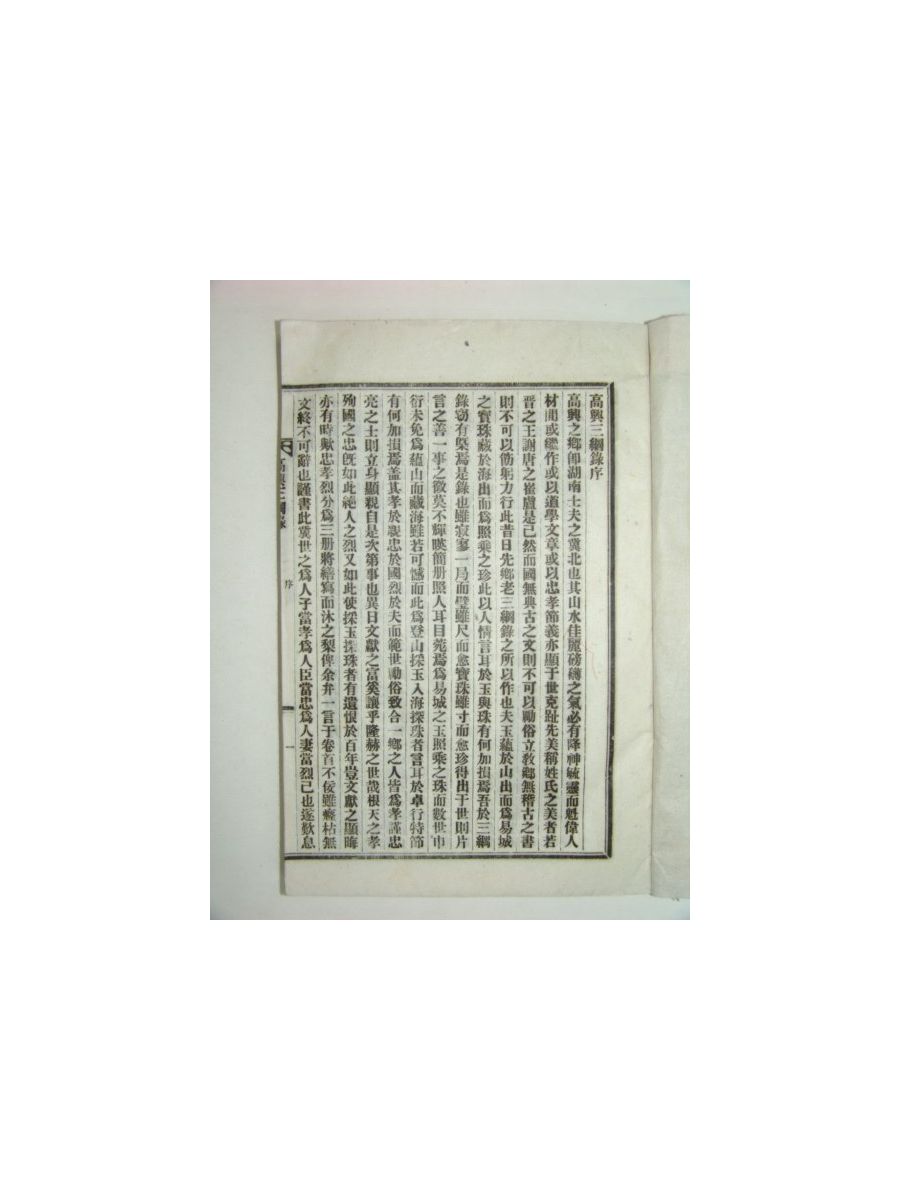 高興三綱錄序
高興之鄕卽湖南士夫之冀北也其山水佳麗磅礴之氣必有降神毓靈而魁偉人
材間或繼作或以道學文章或以忠孝節義亦顯于世克趾先美稱姓氏之美者若
晋之王謝唐之崔盧是已然而國無典古之文則不可以勵俗立敎鄕無稽古之書
則不可以飭躬力行此昔日先鄕老三綱錄之所以作也夫玉蘊於山出而爲易城
之寶珠藏於海出而爲照乘之珍此以人情言耳於玉與珠有何加損焉吾於三綱
錄窃有槩焉是錄也雖寂寥一局而璧雖尺而愈寶珠雖寸而愈珍得出于世則片
言之善一事之微莫不輝暎簡册照人耳目菀焉爲易城之玉照乘之珠而數世巾
衍未免爲蘊山而藏海雖若可憾而此爲登山採玉入海探珠者言耳於卓行特節
有何加損焉盖其孝於親忠於國烈於夫而範世勵俗致合一鄕之人皆爲孝謹忠
亮之士則立身顯親自是次第事也異日文獻之富奚讓乎隆赫之世哉根天之孝
殉國之忠旣如此絕人之烈又如此使採玉探珠者有遺恨於百年豈文獻之顯晦
亦有時歟忠孝烈分爲三册將繕寫而沐之梨俾余弁一言于卷首不佞雖癃枯無
文終不可辭也謹書此冀世之爲人子當孝爲人臣當忠爲人妻當烈已也遂歎息
高興三綱錄
序
一